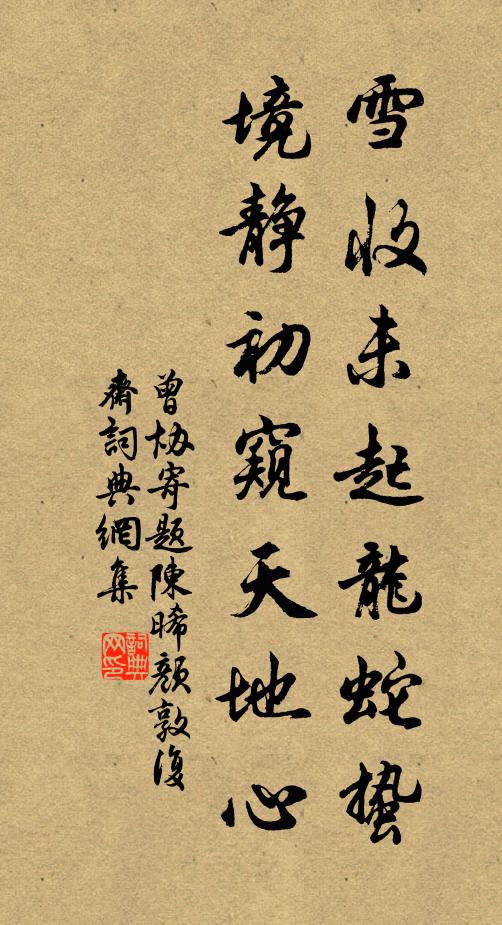 雪收未起龍蛇蟄
境靜初窺天地心
曾協寄題陳晞顏敦復
齋詞典網集
詞典
网印